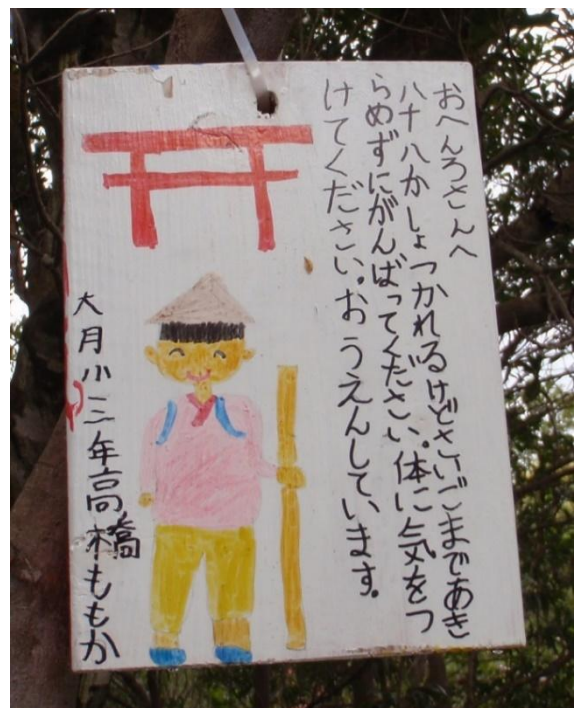 おへんろさんへ
八十八かしょつかれるけどさいごまであき
らめずにがんばってください。体に気をつ
けてください。おうえんしています。
大月小三年高橋ももか